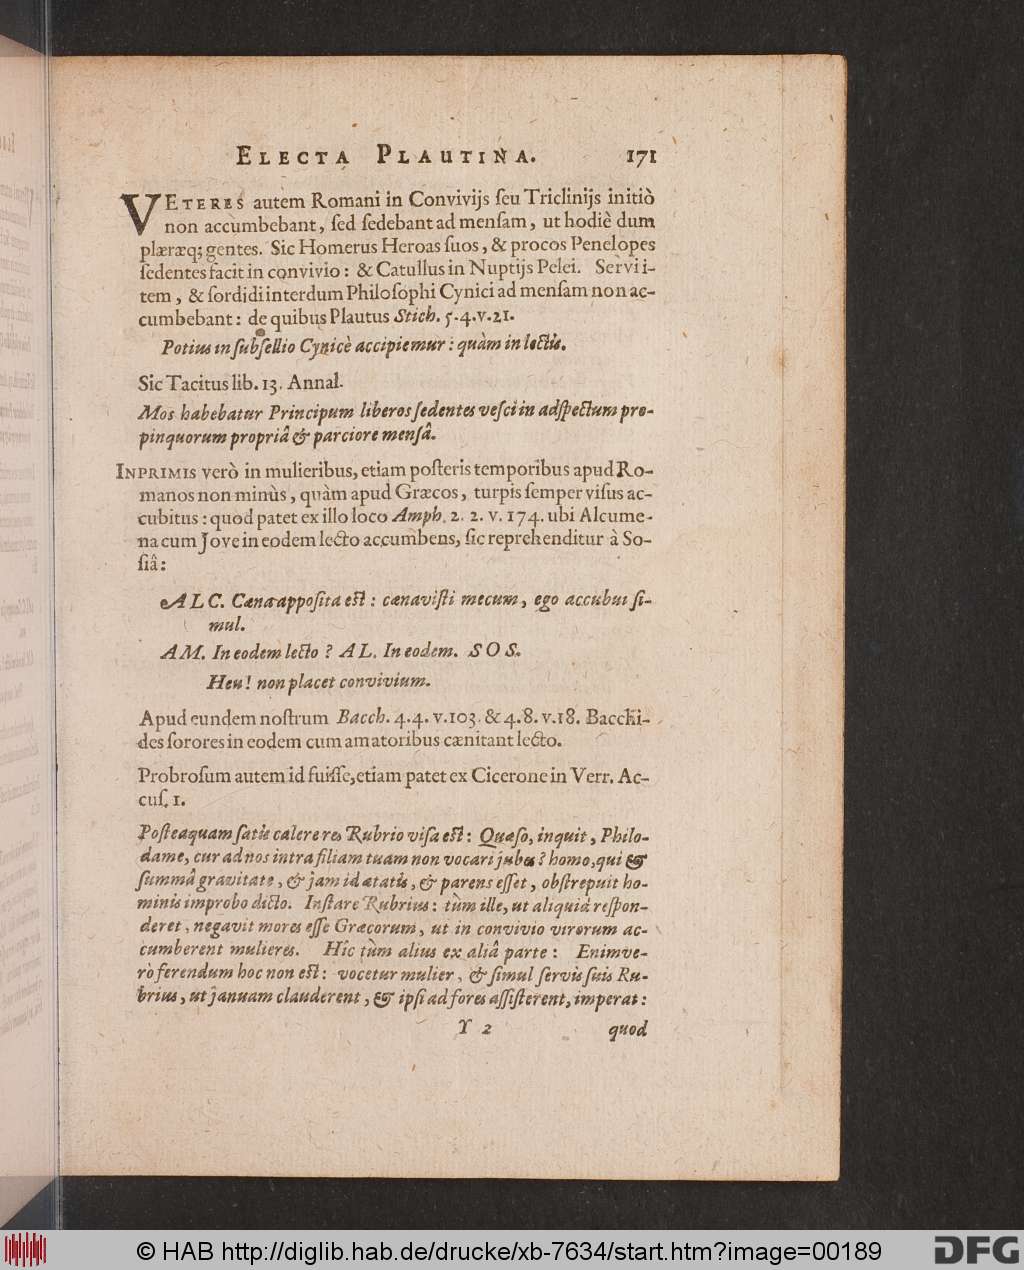 ELECTA PLAUTINA. 171
VETERES autem Romani in Convivijs ſeu Triclinijs initiò
non accumbebant, ſed ſedebant ad menſam, ut hodiè dum
plæræq; gentes. Sic Homerus Heroas ſuos, & procos Penelopes
ſedentes facit in convivio: & Catullus in Nuptijs Pelei. Servi i-
tem, & ſordidi interdum Philoſophi Cynici ad menſam non ac-
cumbebant: de quibus Plautus Stich. 5.4.v.21.
Potius in ſubſellio Cynicè accipiemur: quàm in lectis.
Sic Tacitus lib. 13. Annal.
Mos habebatur Principum liberos ſedentes veſci in adſpectum pro-
pinquorum propriâ & parciore menſâ.
INPRIMIS verò in mulieribus, etiam poſteris temporibus apud Ro-
manos non minùs, quàm apud Græcos, turpis ſemper viſus ac-
cubitus: quod patet ex illo loco Amph. 2. 2. v. 174. ubi Alcume-
na cum Jove in eodem lecto accumbens, ſic reprehenditur à So-
ſiâ:
ALC. Cæna appoſita eſt: cænaviſti mecum, ego accubui ſi-
mul.
AM. In eodem lecto? AL. In eodem. SOS.
Heu! non placet convivium.
Apud eundem noſtrum Bacch. 4.4. v.103. & 4.8. v.18. Bacchi-
des ſorores in eodem cum amatoribus cænitant lecto.
Probroſum autem id fuiſſe, etiam patet ex Cicerone in Verr. Ac-
cuſ. 1.
Poſteaquam ſatis calere res Rubrio viſa eſt: Quæſo, inquit, Philo-
dame, cur ad nos intra filiam tuam non vocari jubes? homo, qui &
ſummâ gravitate, & jam id ætatis, & parens eſſet, obſtrepuit ho-
minis improbo dicto. Inſtare Rubrius: tùm ille, ut aliquid reſpon-
deret, negavit mores eſſe Græcorum, ut in convivio virorum ac-
cumberent mulieres. Hîc tùm alius ex aliâ parte: Enimve-
rò ferendum hoc non eſt: vocetur mulier, & ſimul ſervis ſuis Ru-
brius, ut januam clauderent, & ipſi ad fores aſſiſterent, imperat:
Y 2 quod
© HAB http://diglib.hab.de/drucke/xb-7634/start.htm?image=00189 DFG